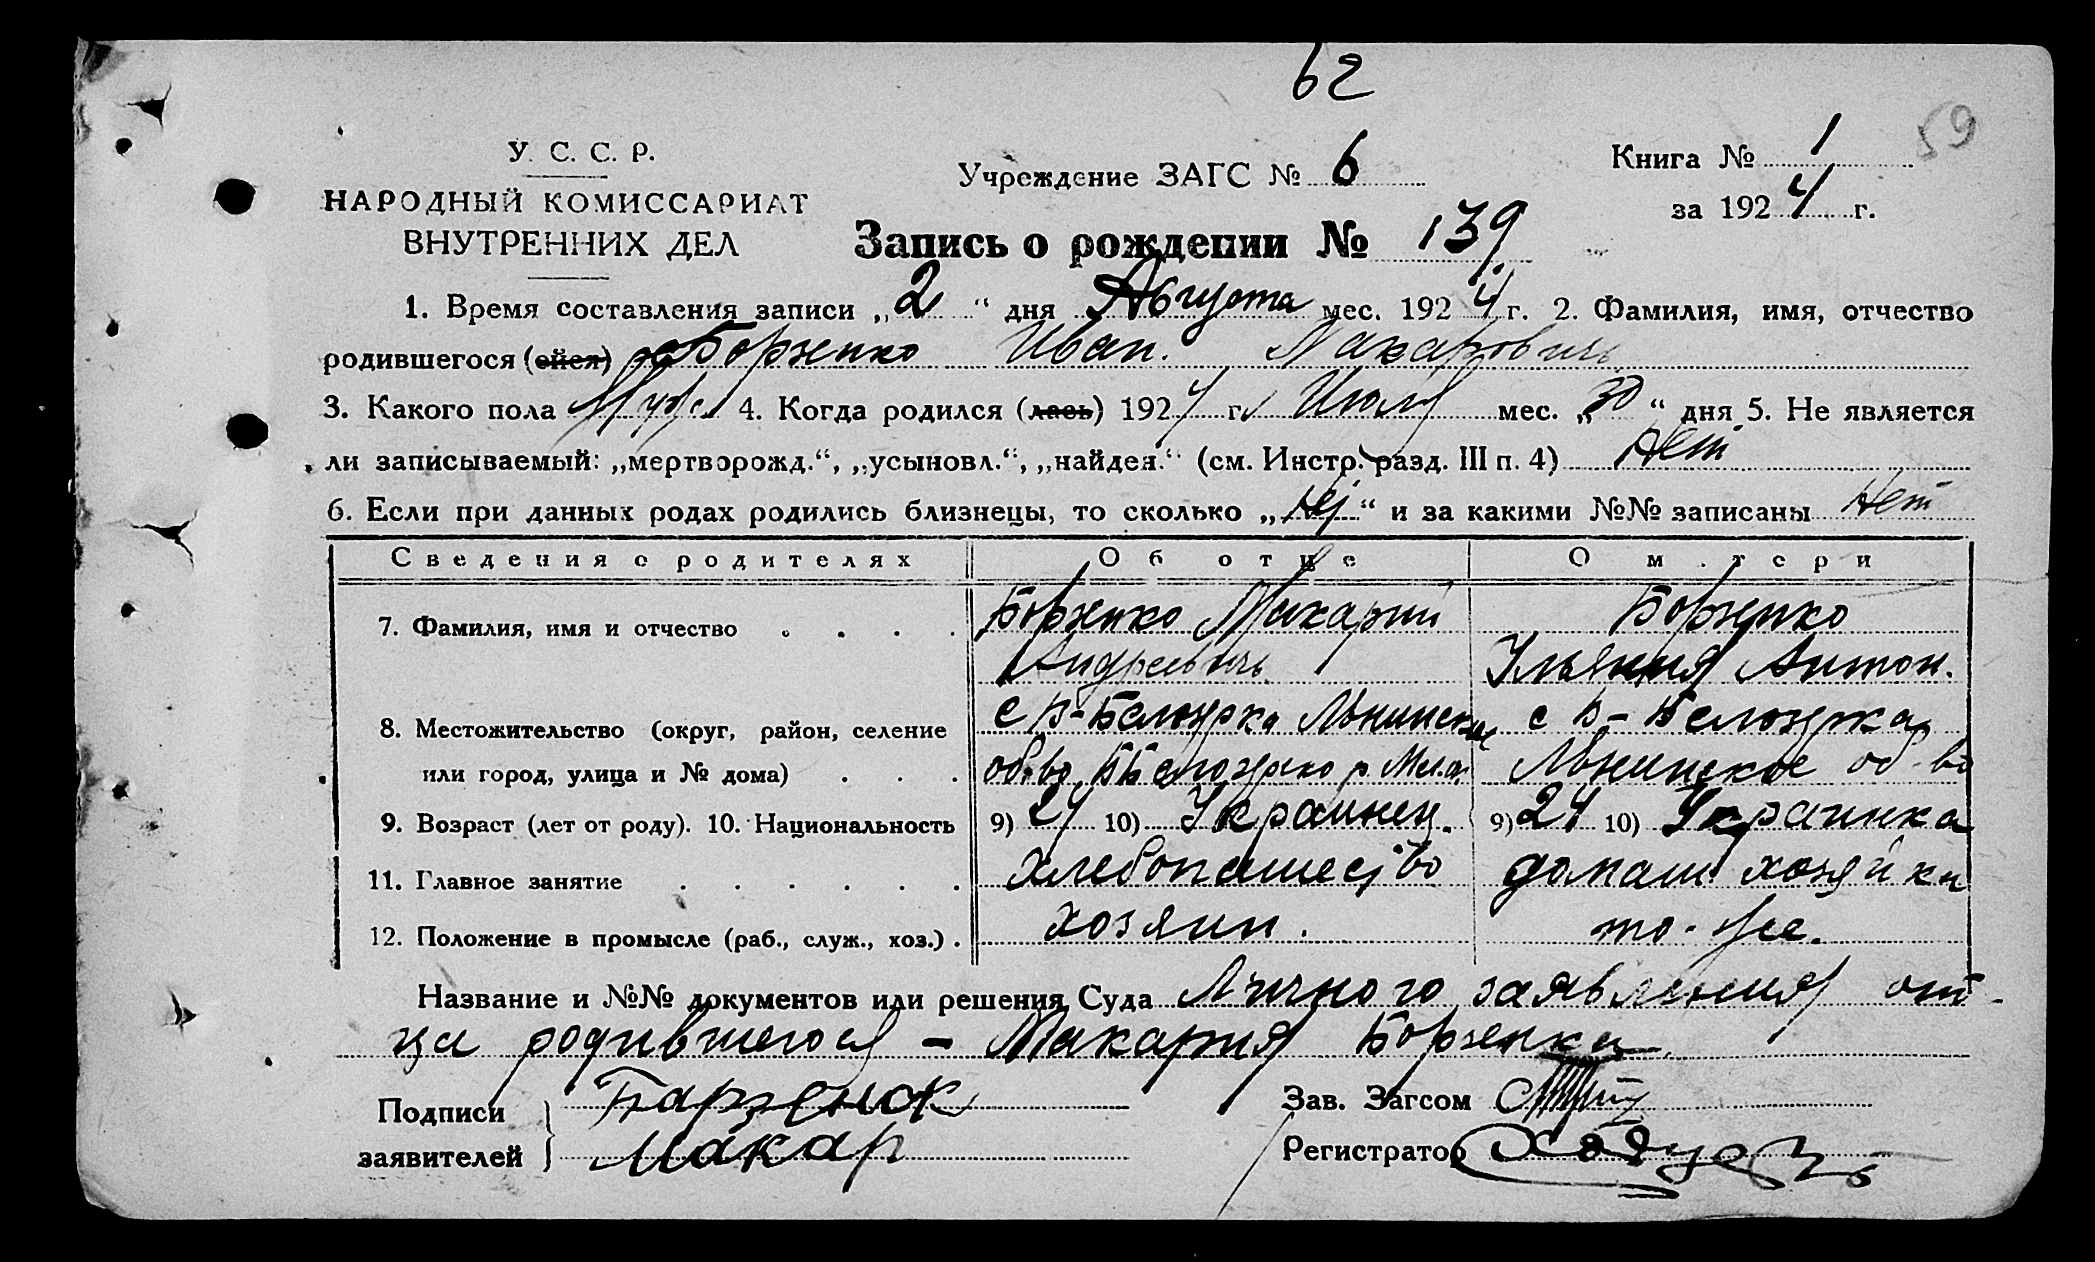 62
59
У. С. С. Р.
НАРОДНЫЙ КОМИССАРИАТ
ВНУТРЕННИХ ДЕЛ
Учреждение ЗАГС № 6
Книга № 1
за 1924 г.
Запись о рождении № 139
1. Время составления записи „2“ дня Августа мес. 1924 г. 2. Фамилия, имя, отчество
родившегося (ейся) Борзенко Иван. Макарович
3. Какого пола Муж. 4. Когда родился (лась) 1924 г. Июля мес. „30“ дня 5. Не является
ли записываемый: „мертворожд.“, „усыновл.“, „найден.“ (см. Инстр. разд. III п. 4) Нет
6. Если при данных родах родились близнецы, то сколько „ “ и за какими №№ записаны Нет
Сведения о родителях Об отце О матери
7. Фамилия, имя и отчество Борзенко Макарий Борзенко
Андреевич Ульяния Антон.
8. Местожительство (округ, район, селение с В-Белозерка с В-Белозерка
или город, улица и № дома) об-во об-во
9. Возраст (лет от роду). 10. Национальность 9) 10) Украинец. 9) 24 10) Украинка
11. Главное занятие Хлебопашество домаш хозяйка
12. Положение в промысле (раб., служ., хоз.) хозяин. то-же.
Название и №№ документов или решения Суда Личного заявления от-
ца родившегося – Макария Борзенка
Подписи Барзенок Зав. Загсом
заявителей Макар Регистратор